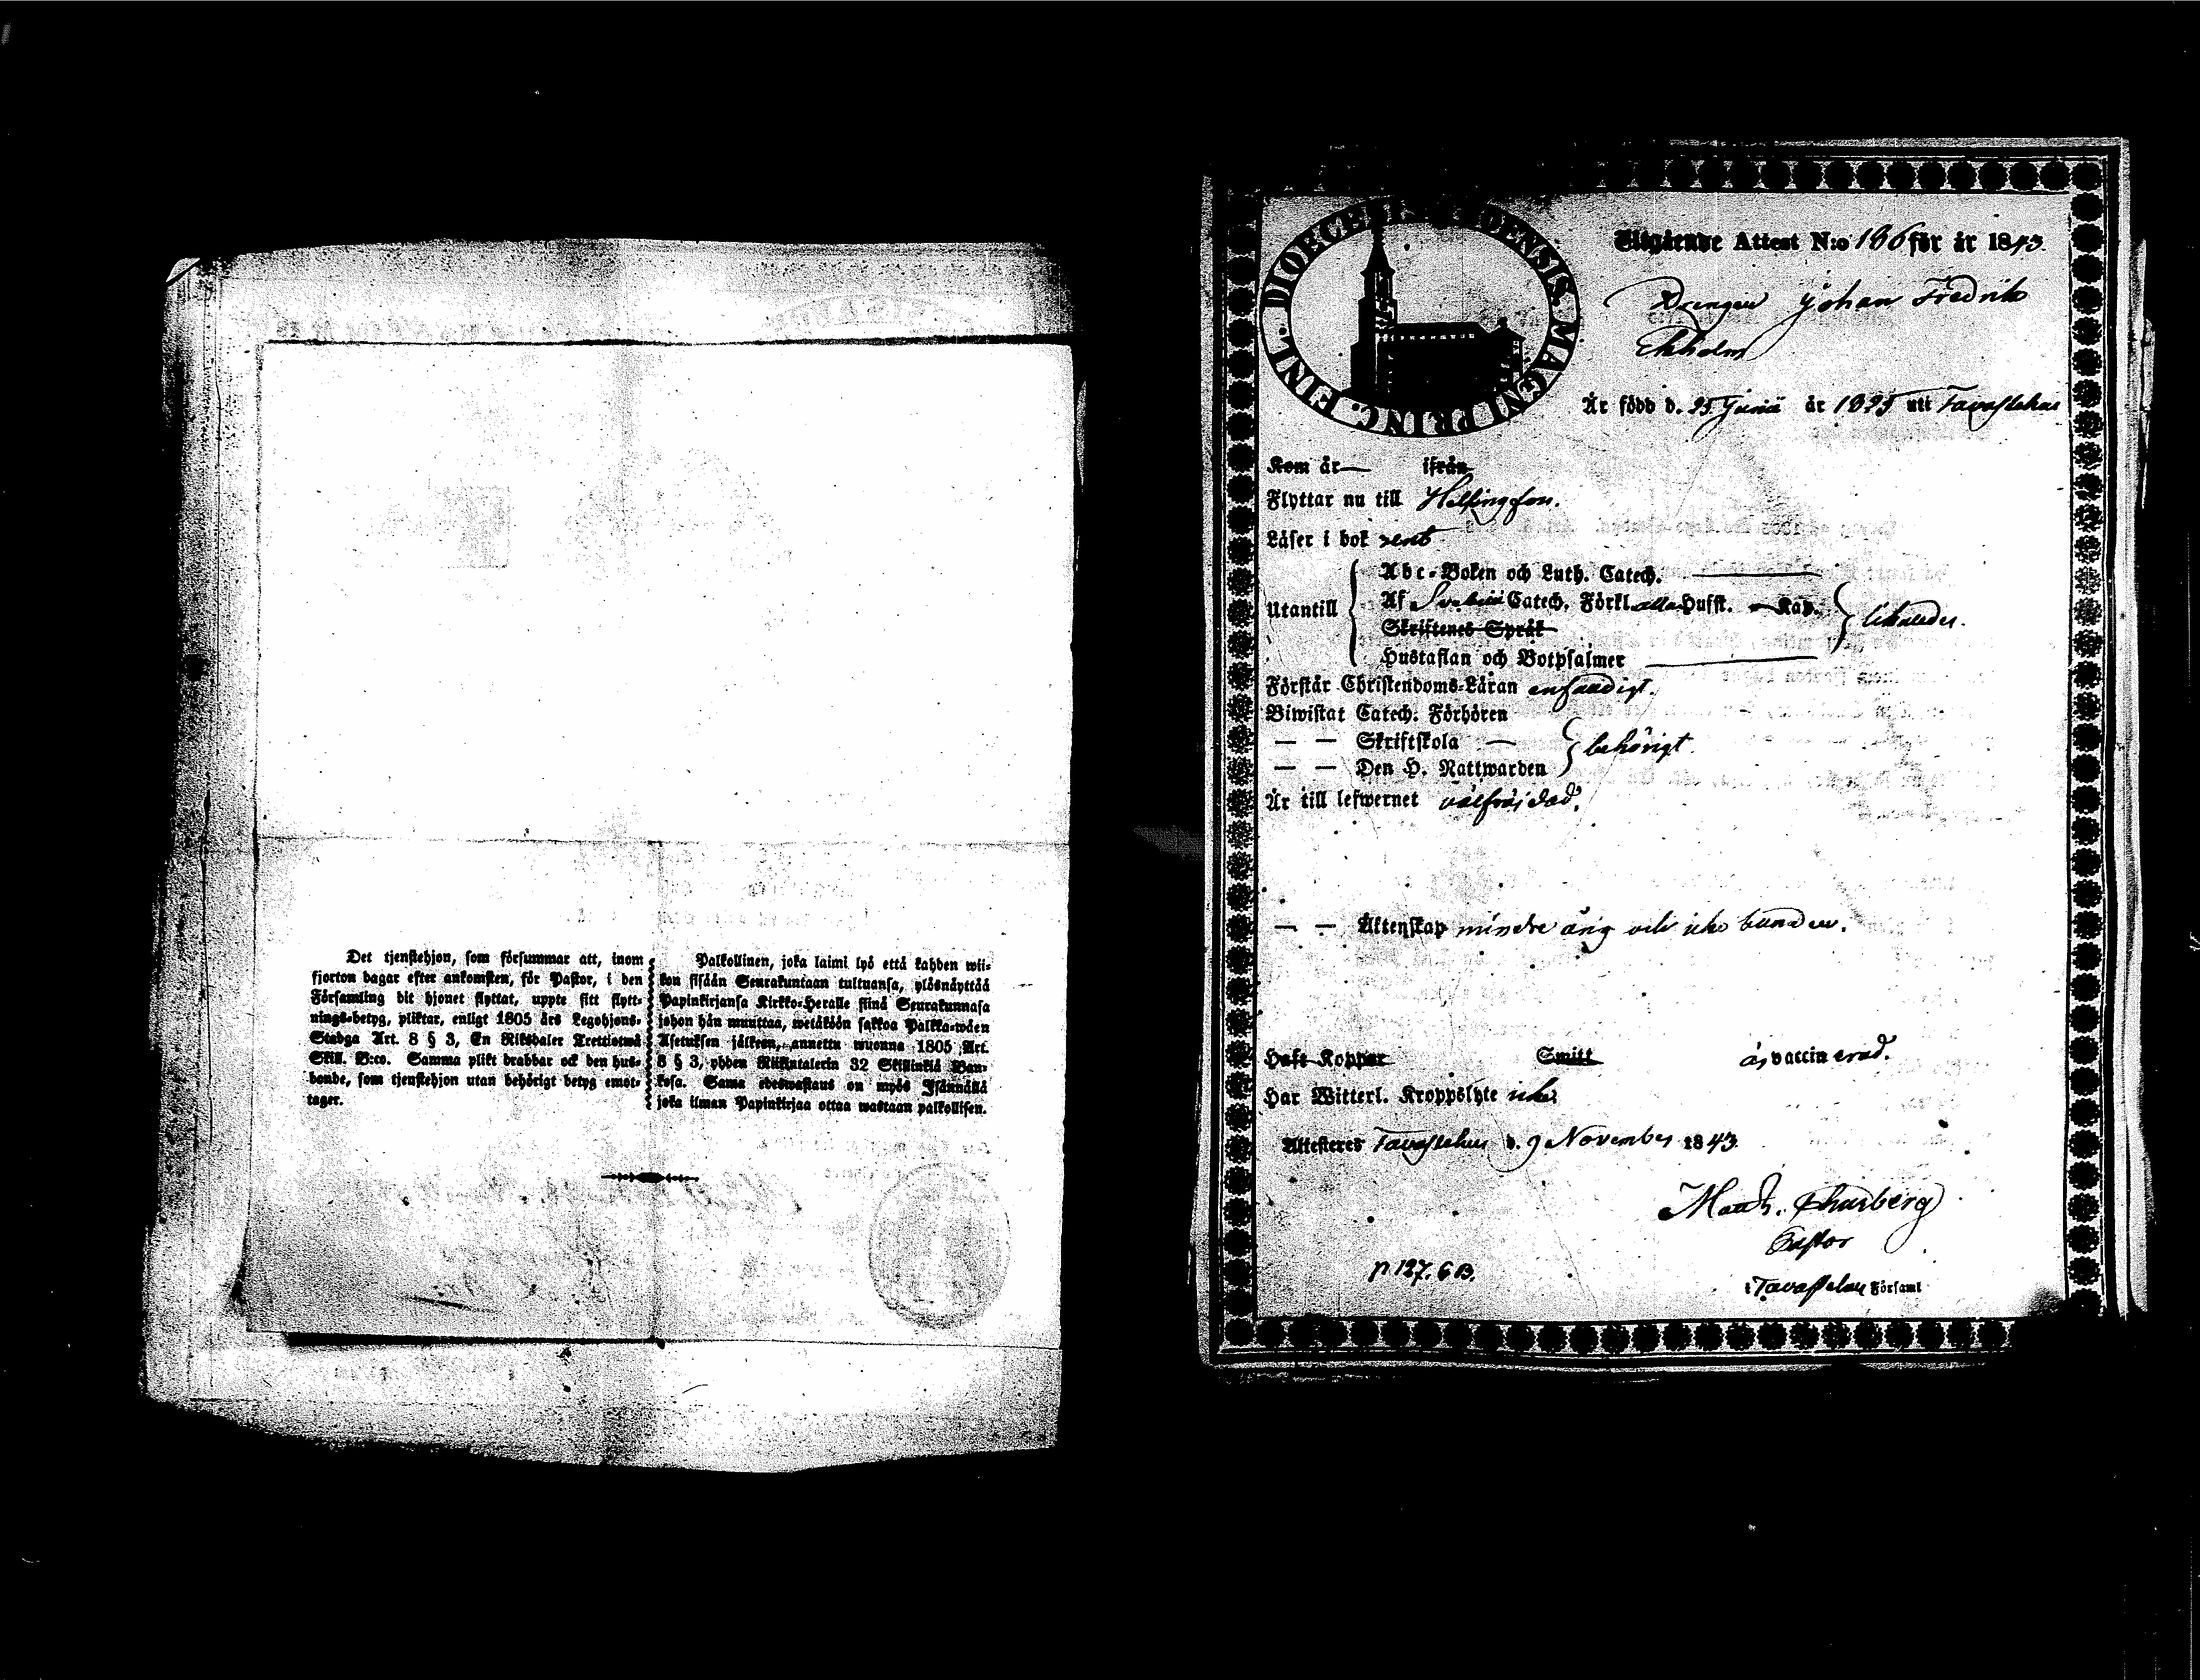 Det tjenstehjon, som försummar att, inom
fjorton dagar efter ankomsten, för Pastor, i den
Församling dit hjonet flyttat, uppte sitt flytt-
nings-betyg, pliktar, enligt 1805 års Legohjons-
Stadga Art. 8 § 3, En Riksdaler Trettiotwå
Skill. B:co. Samma plikt drabbar ock den hus-
bonde, som tjenstehjon utan behörigt betyg emot-
tager.
Palkollinen, joka laimi lyö että kahden wii-
kon sisään Seurakuntaan tultuansa, ylösnäyttää
Papinkirjansa Kirkko-Heralle siinä Seurakunnasa
johon hän muuttaa, wetäköön sakkoa Palkka-wäen
Asetuksen jälkeen, annettu wuonna 1805 Art.
8 § 3, yhden Riikintalerin 32 Skillinkiä Ban-
kosa. Sama edeswastaus on myös Isännällä
joka ilman Papinkirjaa ottaa wastaan palkollisen.
DIOECESIS ABOENSIS. MAGNI PRINC. FINL.
Utgående Attest N:o 186 för år 1843.
Drengen Johan Fredrik
Ekholm
Är född d. 25 Junii år 1825 uti Tavastehus
Kom år — ifrån
Flyttar nu till Helsingfors.
Läser i bok rent
Utantill
Abc-Boken och Luth. Catech.
Af Svebilii Catech. Förkl. alla Hufst. — Kap.
Skriftenes Språk
Hustaflan och Botpsalmer
likaledes.
Förstår Christendoms-Läran enfaldigt.
Biwistat Catech. Förhören
— — Skriftskola —
— — Den H. Nattwarden
behörigt.
Är till lefwernet välfräjdad.
— — Äktenskap mindre årig och icke bunden.
Haft Koppor Smitt är vaccinerad.
Har Witterl. Kroppslyte icke
Attesteras Tavastehus d. 9 November 1843.
Pastor
i Tavastehus Församl
p. 127. 6 B.